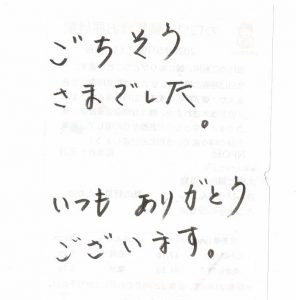 ごちそう
さまでした。
いつも ありがとう
ございます。